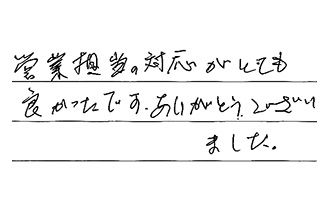 営業担当の対応がとても
良かったです。ありがとうござい
ました。